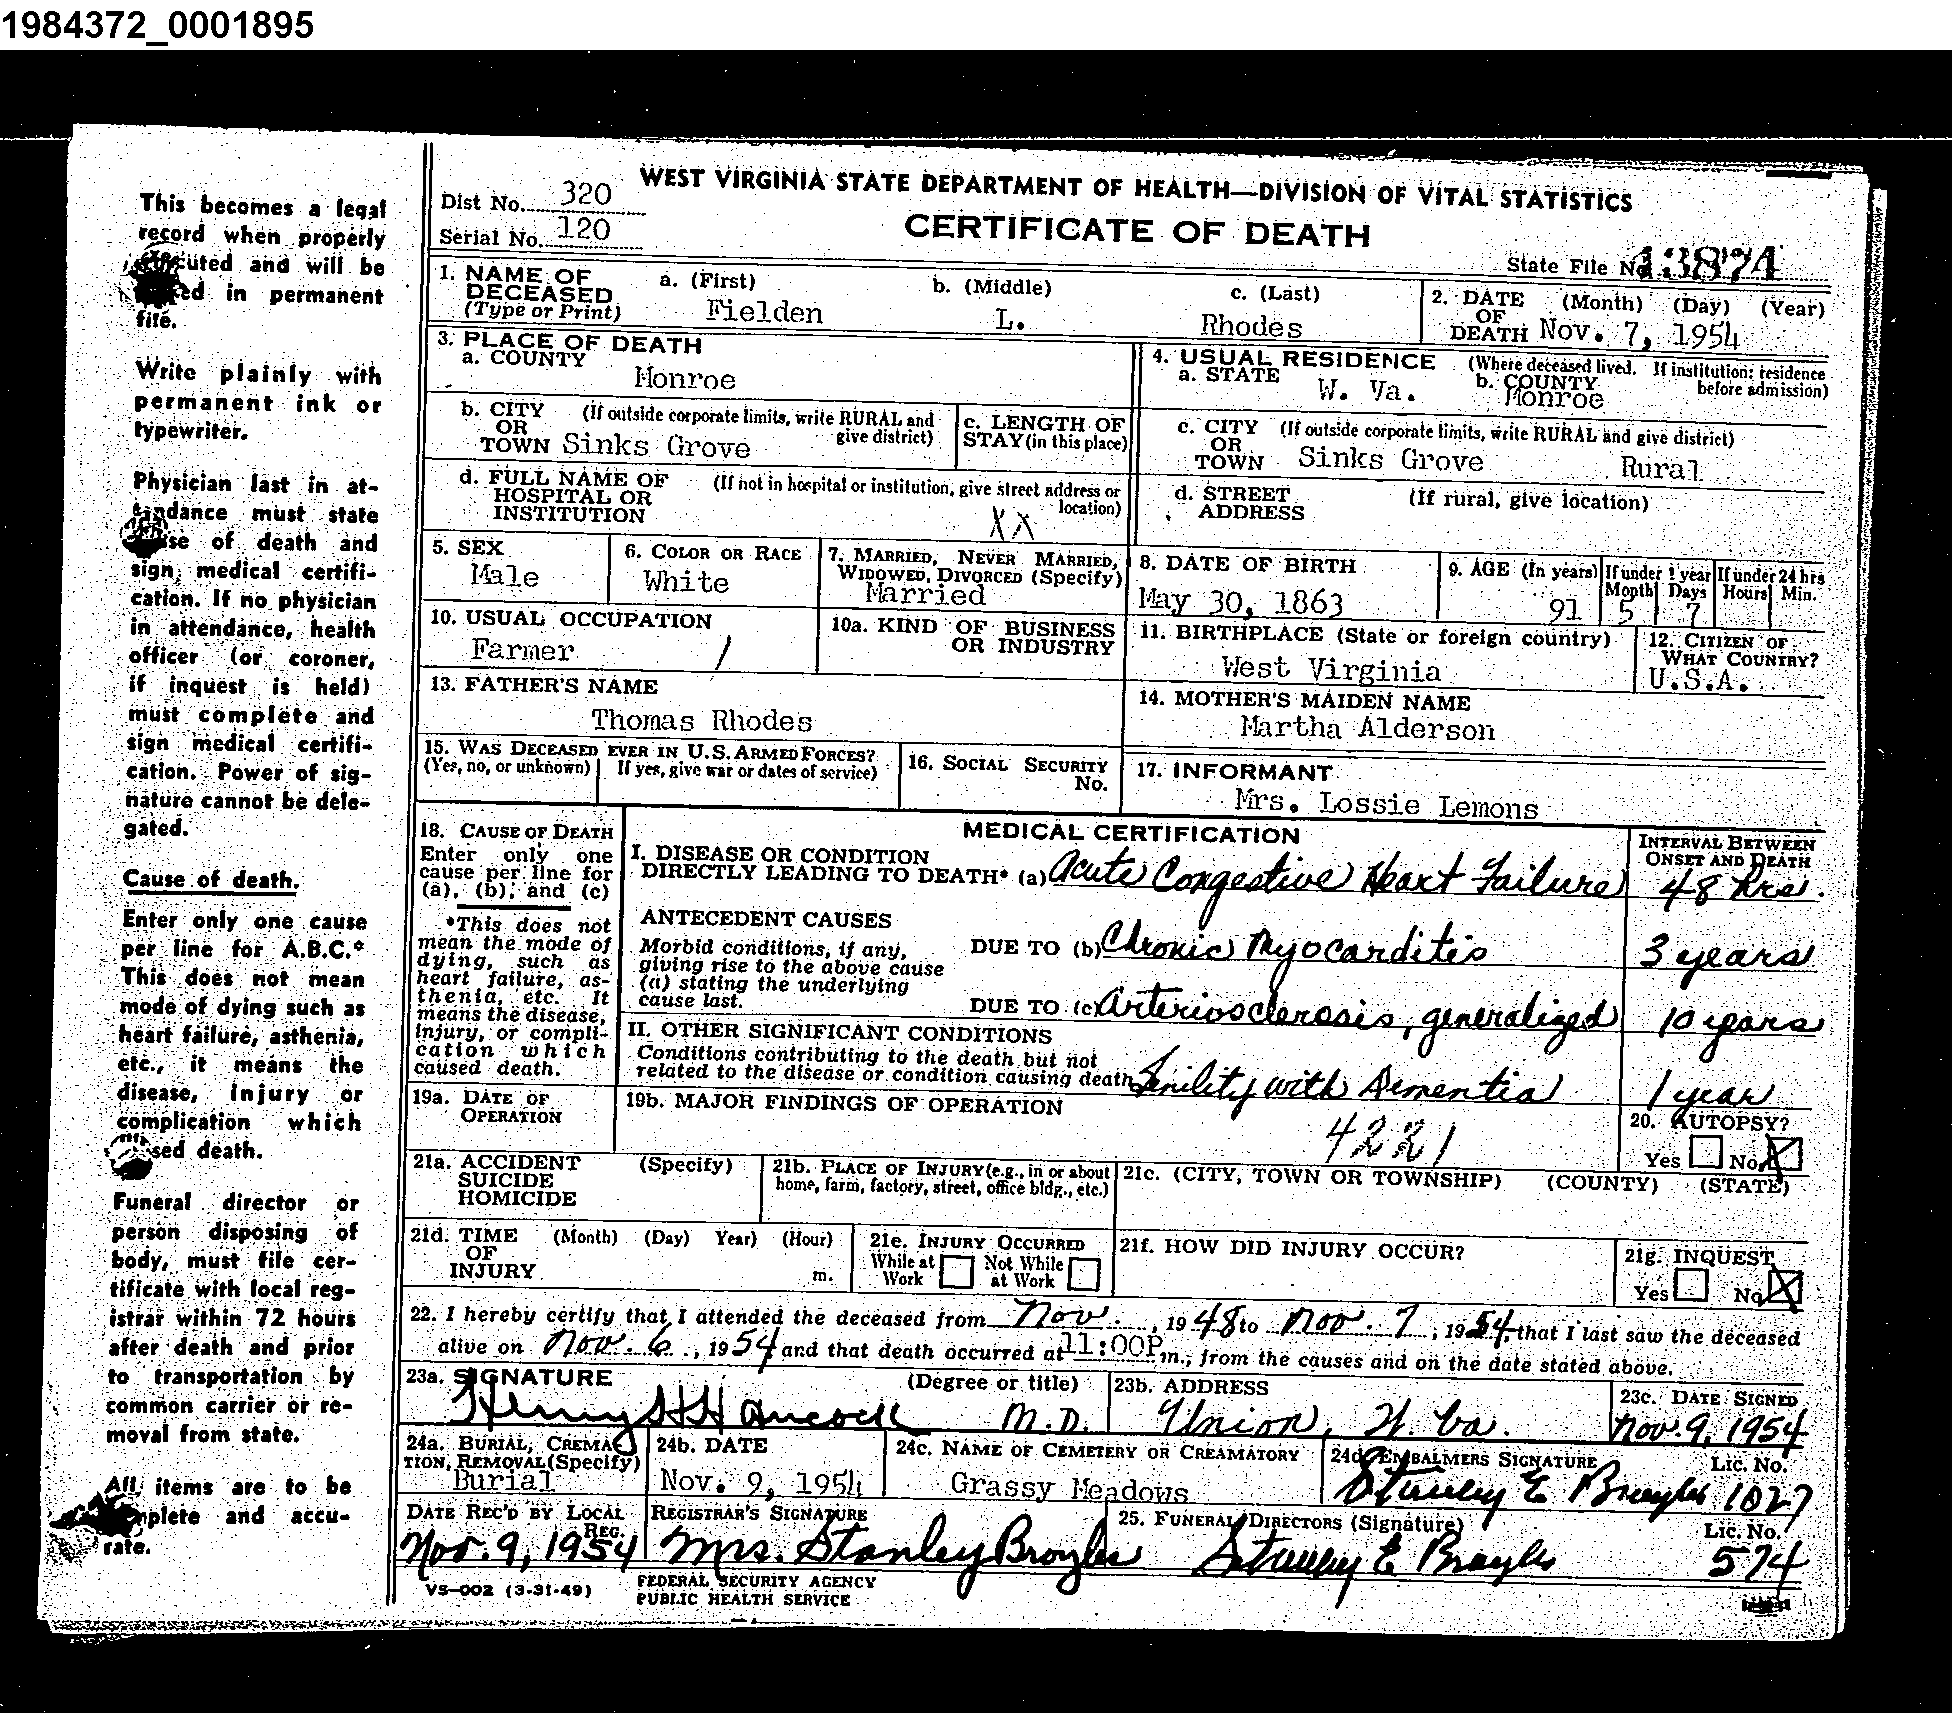 1984372_0001895
This becomes a legal
record when properly
executed and will be
in permanent
file.
Write plainly with
permanent ink or
typewriter.
Physician last in at-
tendance must state
of death and
sign medical certifi-
cation. If no physician
in attendance, health
officer (or coroner,
if inquest is held)
must complete and
sign medical certifi-
cation. Power of sig-
nature cannot be dele-
gated.
Cause of death.
Enter only one cause
per line for A.B.C.*
This does not mean
mode of dying such as
heart failure, asthenia,
etc., it means the
disease, Injury or
complication which
death.
Funeral director or
person disposing of
body, must file cer-
tificate with local reg-
istrar within 72 hours
after death and prior
to transportation by
common carrier or re-
moval from state.
All items are to be
complete and accu-
rate.
WEST VIRGINIA STATE DEPARTMENT OF HEALTH—DIVISION OF VITAL STATISTICS
Dist No. 320
Serial No. 120
CERTIFICATE OF DEATH
State File No. 13874
1. NAME OF DECEASED (Type or Print) a. (First) Fielden b. (Middle) L. c. (Last) Rhodes
2. DATE OF DEATH (Month) (Day) (Year) Nov. 7, 1954
3. PLACE OF DEATH
a. COUNTY Monroe
4. USUAL RESIDENCE (Where deceased lived. If institution: residence before admission)
a. STATE W. Va. b. COUNTY Monroe
b. CITY OR TOWN (If outside corporate limits, write RURAL and give district) Sinks Grove
c. LENGTH OF STAY (in this place)
c. CITY OR TOWN (If outside corporate limits, write RURAL and give district) Sinks Grove Rural
d. FULL NAME OF HOSPITAL OR INSTITUTION (If not in hospital or institution, give street address or location) XX
d. STREET ADDRESS (If rural, give location)
5. SEX Male
6. COLOR OR RACE White
7. MARRIED, NEVER MARRIED, WIDOWED, DIVORCED (Specify) Married
8. DATE OF BIRTH May 30, 1863
9. AGE (In years) 91 If under 1 year Month 5 Days 7 If under 24 hrs Hours Min.
10. USUAL OCCUPATION Farmer /
10a. KIND OF BUSINESS OR INDUSTRY
11. BIRTHPLACE (State or foreign country) West Virginia
12. CITIZEN OF WHAT COUNTRY? U.S.A.
13. FATHER'S NAME Thomas Rhodes
14. MOTHER'S MAIDEN NAME Martha Alderson
15. WAS DECEASED EVER IN U.S. ARMED FORCES? (Yes, no, or unknown) If yes, give war or dates of service)
16. SOCIAL SECURITY No.
17. INFORMANT Mrs. Lossie Lemons
18. CAUSE OF DEATH
Enter only one
cause per line for
(a), (b), and (c)
*This does not
mean the mode of
dying, such as
heart failure, as-
thenia, etc. It
means the disease,
injury, or compli-
cation which
caused death.
MEDICAL CERTIFICATION
INTERVAL BETWEEN ONSET AND DEATH
I. DISEASE OR CONDITION
DIRECTLY LEADING TO DEATH* (a) Acute Congestive Heart Failure 48 hrs.
ANTECEDENT CAUSES
Morbid conditions, if any,
giving rise to the above cause
(a) stating the underlying
cause last.
DUE TO (b) Chronic Myocarditis 3 years
DUE TO (c) Arteriosclerosis, generalized 10 years
II. OTHER SIGNIFICANT CONDITIONS
Conditions contributing to the death but not
related to the disease or condition causing death Senility with Dementia 1 year
19a. DATE OF OPERATION
19b. MAJOR FINDINGS OF OPERATION
4221
20. AUTOPSY?
Yes No X
21a. ACCIDENT SUICIDE HOMICIDE (Specify)
21b. PLACE OF INJURY (e.g., in or about home, farm, factory, street, office bldg., etc.)
21c. (CITY, TOWN OR TOWNSHIP) (COUNTY) (STATE)
21d. TIME OF INJURY (Month) (Day) Year) (Hour) m.
21e. INJURY OCCURRED While at Work Not While at Work
21f. HOW DID INJURY OCCUR?
21g. INQUEST
Yes No X
22. I hereby certify that I attended the deceased from Nov. , 1948 to Nov. 7, 1954, that I last saw the deceased
alive on Nov. 6, 1954 and that death occurred at 11:00P m., from the causes and on the date stated above.
23a. SIGNATURE (Degree or title) Henry H Hancock M.D.
23b. ADDRESS Union, W. Va.
23c. DATE SIGNED Nov. 9, 1954
24a. BURIAL, CREMATION, REMOVAL (Specify) Burial
24b. DATE Nov. 9, 1954
24c. NAME OF CEMETERY OR CREAMATORY Grassy Meadows
24d. EMBALMERS SIGNATURE Stanley E Broyles Lic. No. 1027
DATE REC'D BY LOCAL REG. Nov. 9, 1954
REGISTRAR'S SIGNATURE Mrs. Stanley Broyles
25. FUNERAL DIRECTORS (Signature) Stanley E Broyles Lic. No. 574
VS-002 (3-31-49)
FEDERAL SECURITY AGENCY
PUBLIC HEALTH SERVICE